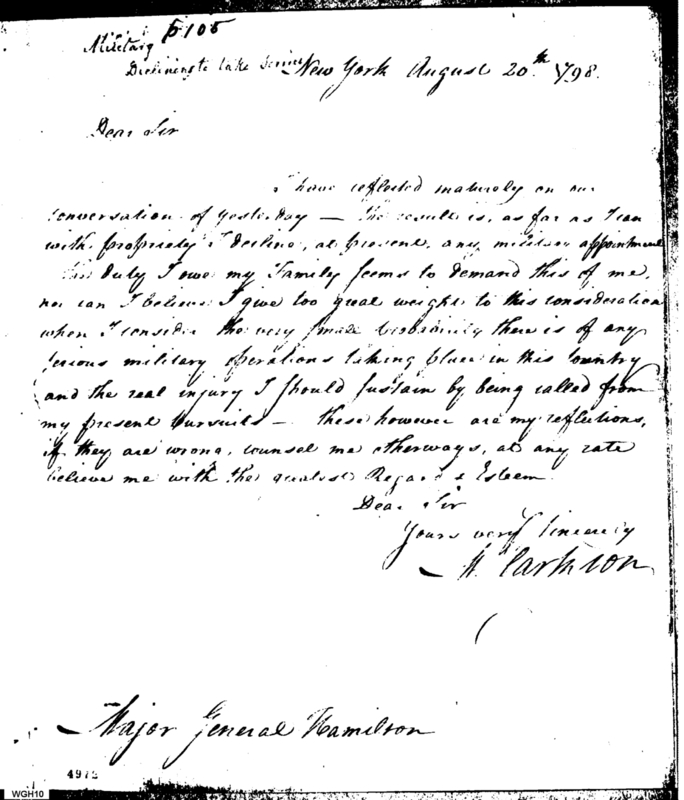 Military 5105
Declining to take Service New York August 20th. 1798.
Dear Sir
I have reflected maturely on our
conversation of yesterday — The result is, as far as I can
with propriety I decline, at present, any military appointment
The duty I owe my Family seems to demand this of me,
nor can I believe I give too great weight to this consideration
when I consider the very small probability there is of any
serious military operations taking place in this Country
and the real injury I should sustain by being called from
my present pursuits — these however are my reflections,
if they are wrong, counsel me otherways, at any rate
believe me with the greatest Regard & Esteem
Dear Sir
Yours very sincerely
M. Clarkson
Major General Hamilton
4973
WGH10